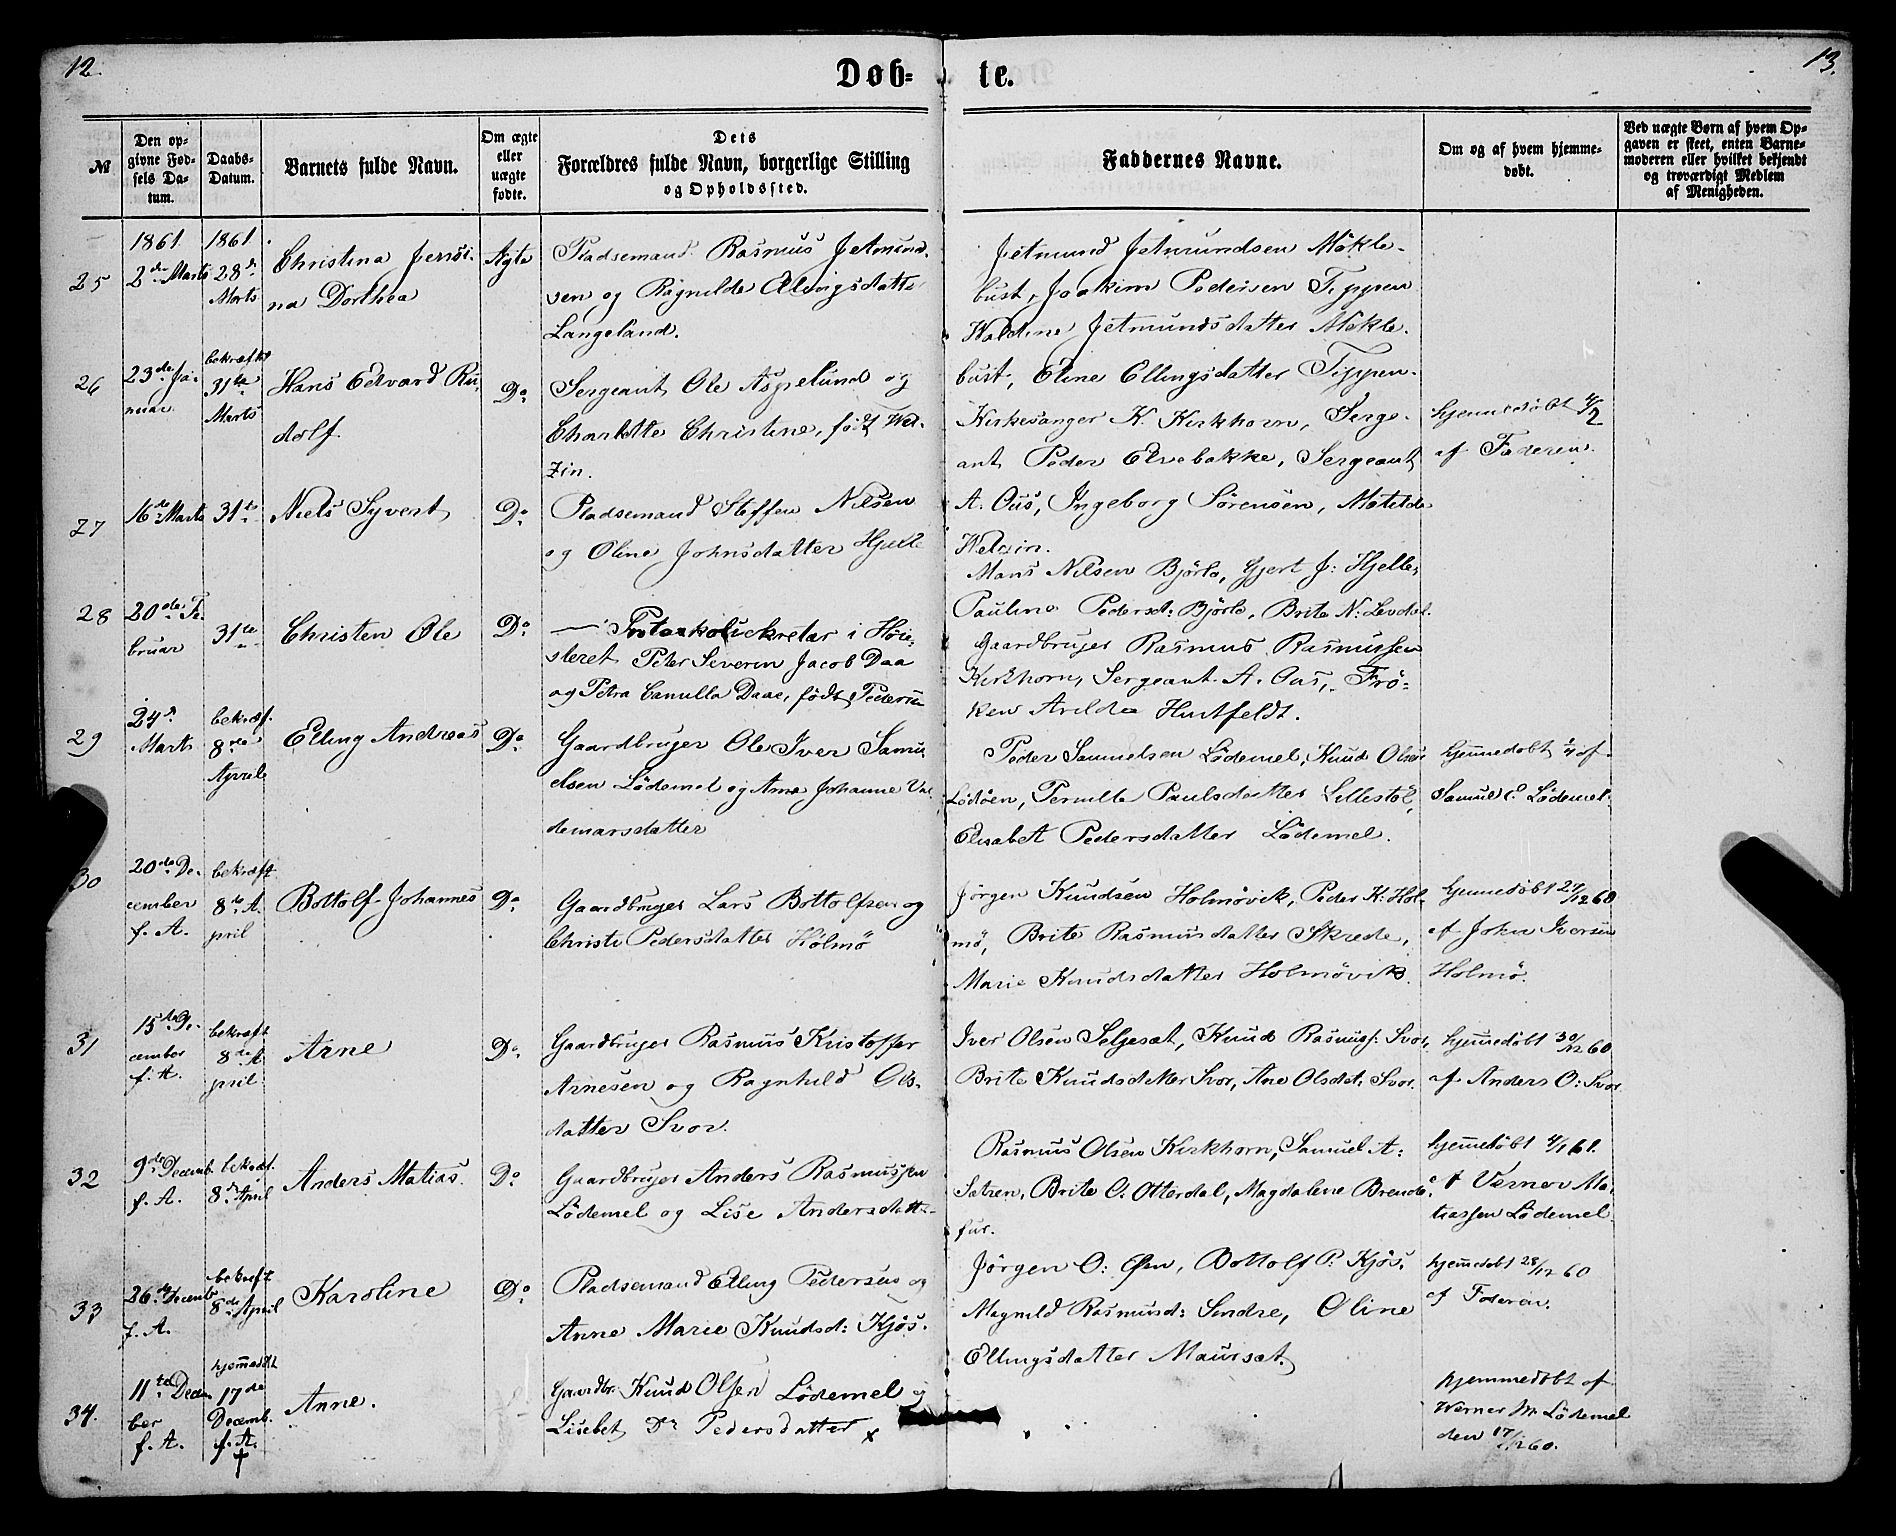 12.
Døb-
te.
13.
№
Den op-
givne Fød-
sels Da-
tum.
Daabs-
Datum.
Barnets fulde Navn.
Om ægte
eller
uægte
fødte.
Dets
Forældres fulde Navn, borgerlige Stilling
og Opholdssted.
Faddernes Navne.
Om og af hvem hjemme-
døbt.
Ved uægte Børn af hvem Op-
gaven er skeet, enten Barne-
moderen eller hvilket bekjendt
og troværdigt Medlem
af Menigheden.
25
1861.
2de Marts
1861.
28de
Marts
Christina
na Dorthea
Ægte
Pladsemand Rasmus Jetmund-
sen og Ragnilde
Langeland.
Jetmund Jetmundsen Mökle-
bust, Joakim Pedersen Tippen
Waldine Jetmundsdatter Mökle-
bust, Eline Ellingsdatter Tippen
26
23de Ja-
nuar
bekræftet
31te
Marts
Hans Edvard Ru-
dolf
Do
Sergeant Ole Aspelund og
Charlotte Christine, født Wel-
zin.
Kirkesanger K. Kirkhorn, Serge-
ant Peder Elvebakke, Sergeant
A. Aus, Ingeborg Sörensen, Matilde
Welzin.
hjemmedöbt 4/2
af Faderen.
27
16de Marts
31te
Niels Syvert
Do
Pladsemand Steffen Nilsen
og Oline Johnsdatter Hjelle
Mons Nilsen Björlo, Gjert J: Hjelle,
Pauline Pedersd: Björlo, Brite N: Levdal
28
20de Fe-
bruar
31te
Christen Ole
Do
Protokolsekretær i Høie-
steret Peter Severin Jacob Daa
og Petra Camilla Daae, født Pedersen
Gaardbruger Rasmus Rasmussen
Kirkhorn, Sergeant A. Aus, Frö-
ken Avilde Huitfeldt.
29
24de
Marts
bekræf.
8de
April
Elling Andreas
Do
Gaardbruger Ole Iver Samu-
elsen Lödemel og Ane Johanne Val-
demarsdatter
Peder Samuelsen Lödemel, Knud Olsen
Lödöen, Pernille Paulsdatter Lillestöl,
Elisabet Pedersdatter Lödemel.
hjemmedöbt 1/4 af
Samuel Lödemel.
30
20de De-
cember
f. A.
bekræft
8de A-
pril
Bottolf Johannes
Do
Gaardbruger Lars Bottolfsen og
Christi Pedersdatter Holmö
Jörgen Knudsen Holmövik, Peder K: Hol-
mö, Brite Rasmusdatter Skrede,
Marie Knudsdatter Holmövik.
hjemmedöbt 27/12 60
af John Iversen
Holmö.
31
15de De-
cember
f. A.
bekræft
8de A-
pril
Arne
Do
Gaardbruger Rasmus Kristoffer
Arnesen og Ragnhild Ols-
datter Svor.
Iver Olsen Selgesæt, Knud Rasmuss: Svor,
Brite Knudsdatter Svor, Ane Olsdat: Svor.
hjemmedöbt 30/12 60
af Anders O: Svor
32
9de Decemb.
f. A.
bekræf.
8de April
Anders Matias.
Do
Gaardbruger Anders Rasmussen
Lödemel og Lise Andersdatter
Rasmus Olsen Kirkhorn, Samuel A:
Sætren, Brite O: Otterdal, Magdalene Brende-
fur.
hjemmedöbt 4/1 61.
af Verner Ma-
tiassen Lödemel.
33
26de Decembr
f. A.
bekræft
8de April
Karoline
Do
Pladsemand Elling Pedersen og
Anne Marie Knudsd: Kjös.
Jörgen O: Øen, Bottolf P: Kjös,
Magnild Rasmusd: Sindre, Oline
Ellingsdatter Maursæt.
hjemmedöbt 28/12 60
af Faderen.
34.
11te Decem-
ber
f. A.
hjemmedöbt
17de
Decemb.
f. A.
†
Anne.
Gaardbr. Knud Olsen Lödemel og
Lisebet Do Pedersdatter x
hjemmedöbt af
Werner M. Lödemel
den 17/12 60.